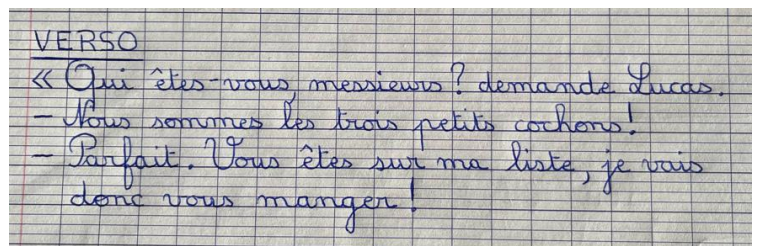 VERSO
« Qui êtes-vous, messieurs ? demande Lucas.
– Nous sommes les trois petits cochons !
– Parfait. Vous êtes sur ma liste, je vais
donc vous manger !